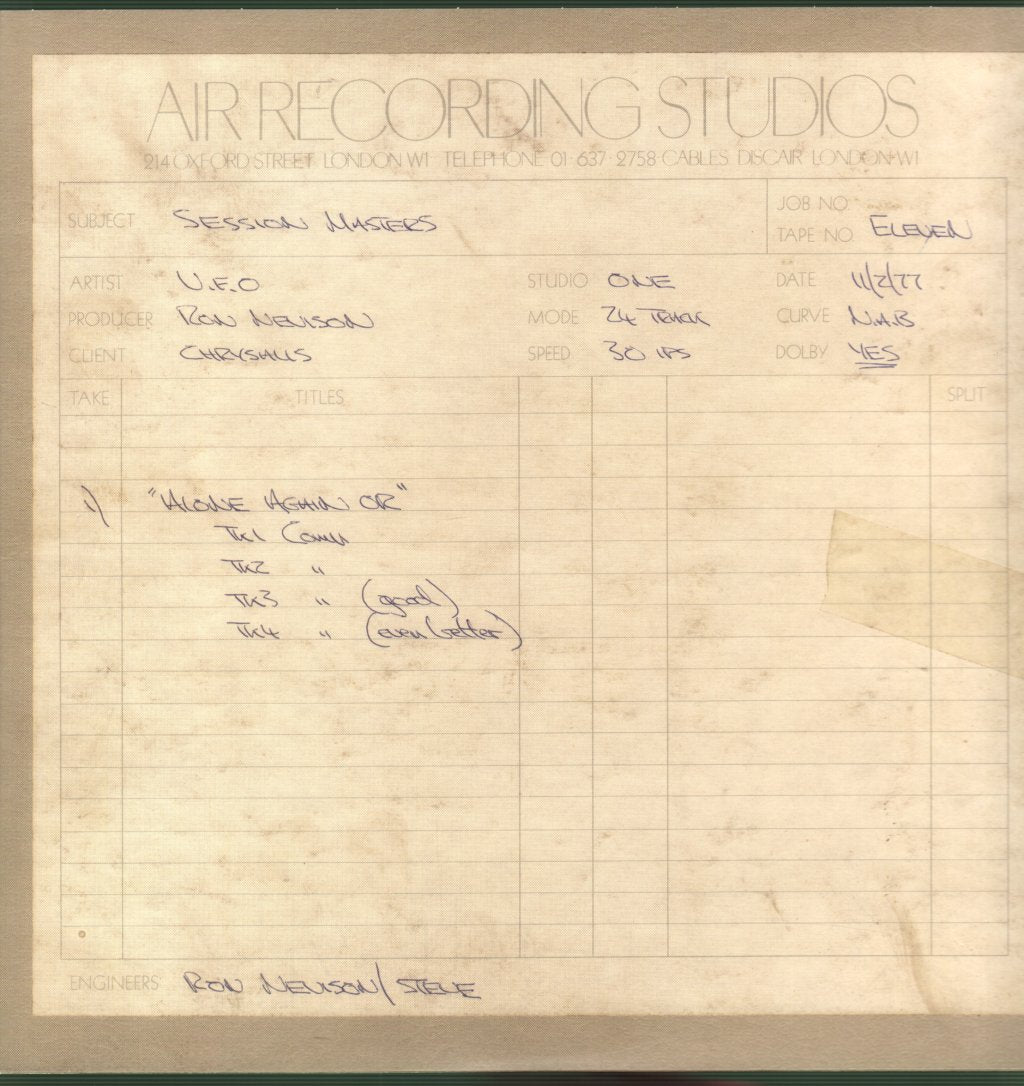 AIR RECORDING STUDIOS
214 OXFORD STREET LONDON W1 TELEPHONE 01·637·2758 CABLES DISCAIR LONDON·W1
SUBJECT SESSION MASTERS
JOB NO
TAPE NO ELEVEN
ARTIST U.F.O STUDIO ONE DATE 11/2/77
PRODUCER RON NEVISON MODE 24 TRACK CURVE N.A.B
CLIENT CHRYSALIS SPEED 30 IPS DOLBY YES
TAKE TITLES SPLIT
1) "ALONE AGAIN OR"
TK1 Comp
TK2 "
TK3 " (good)
TK4 " (even better)
ENGINEERS RON NEVISON/STEVE